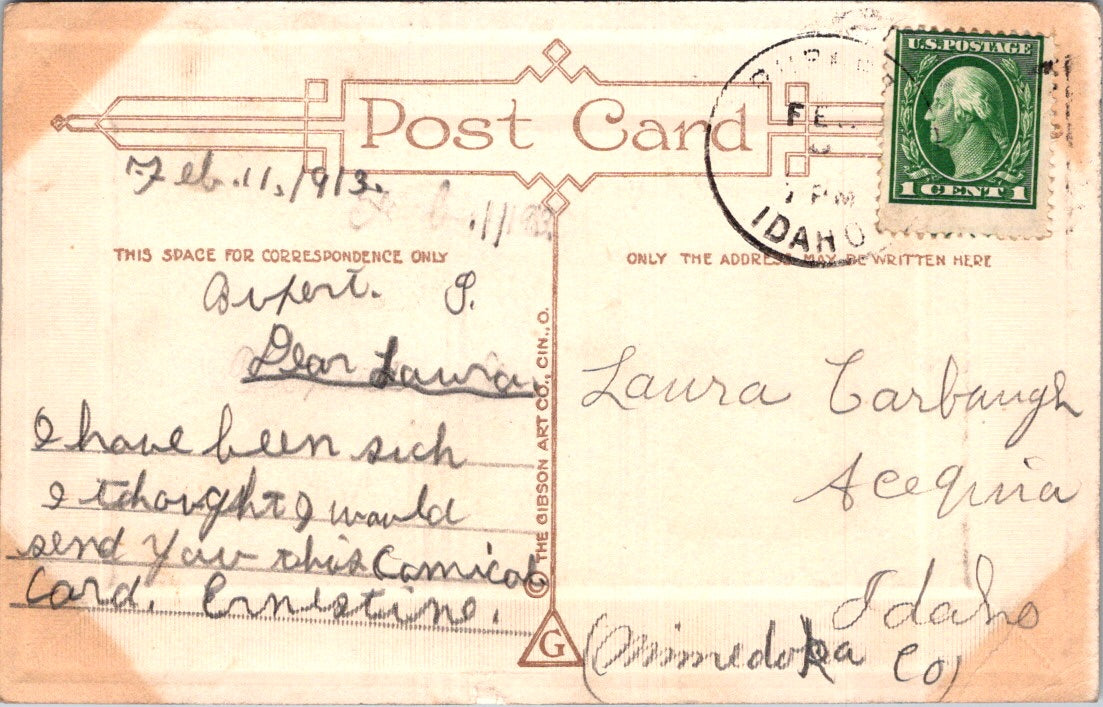 Post Card
U.S.POSTAGE
1 CENT 1
FE
7 PM
IDAHO
Feb. 11, 1913.
11
THIS SPACE FOR CORRESPONDENCE ONLY
ONLY THE ADDRESS MAY BE WRITTEN HERE
Dear Laura.
I have been sich
I thought I would
send you this Comical
Card. Ernistine.
© THE GIBSON ART CO., CIN., O.
G
Laura Carbaugh
Acequia
Idaho
(Minnedoka Co)